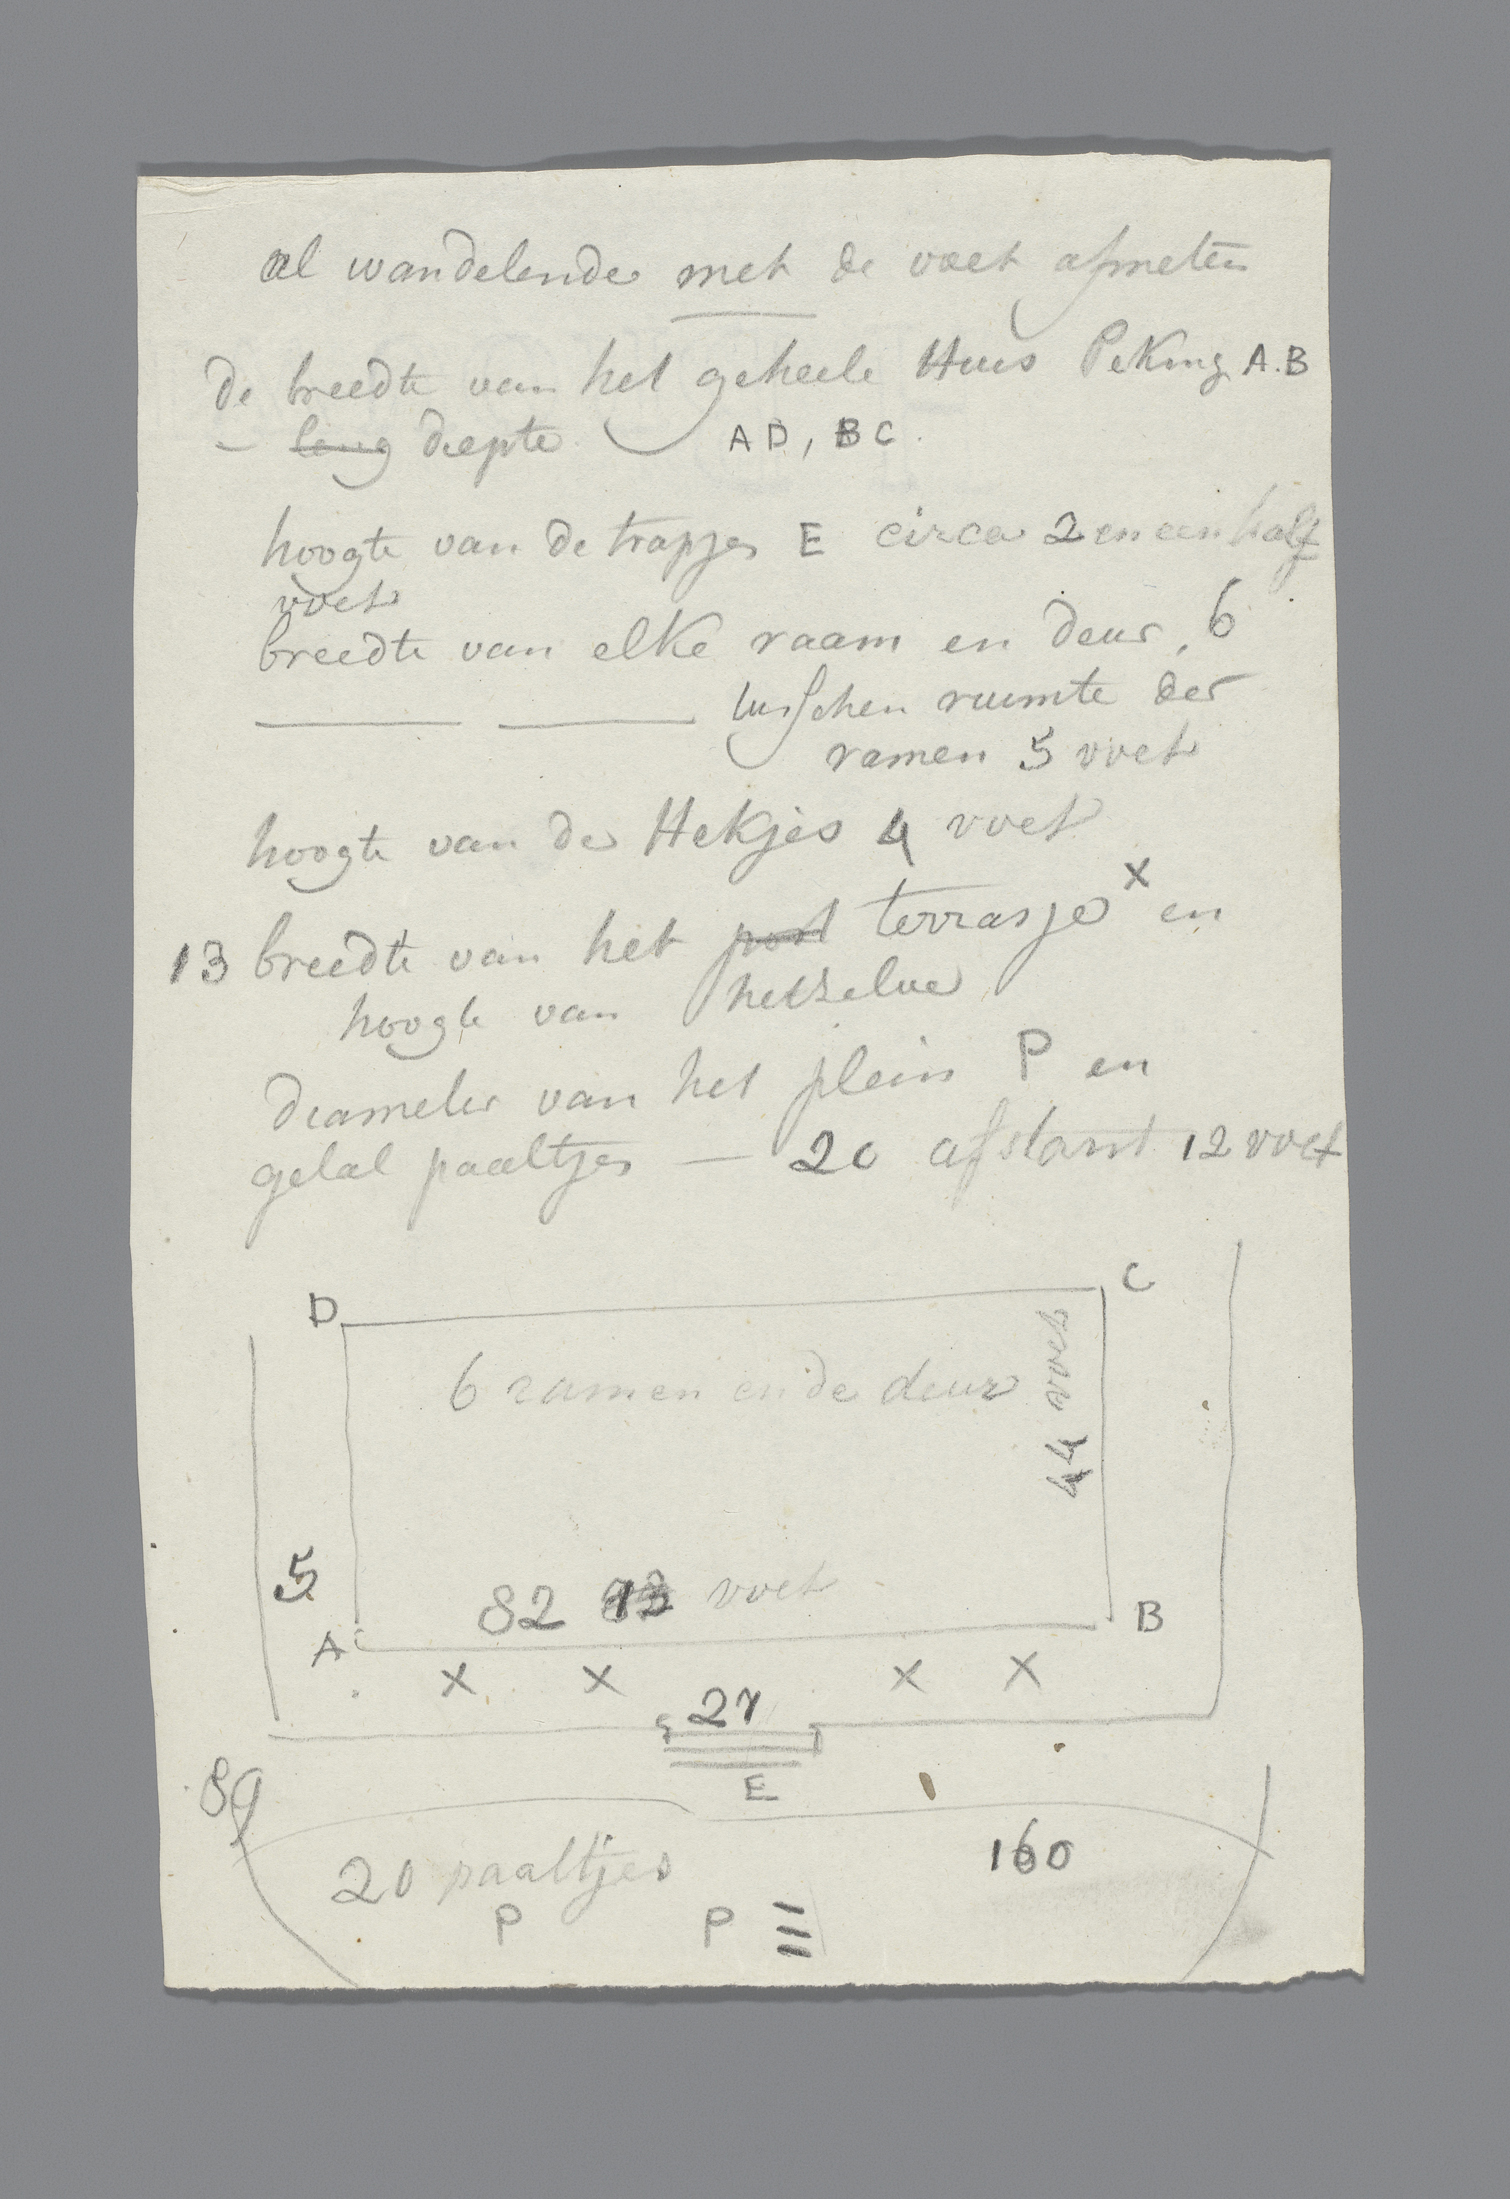 al wandelende met de voet afmeten
de breedte van het geheele Huis Peking A.B
— leng diepte AD, BC.
hoogte van de trapjes E circa 2 en een half
voet
breedte van elke raam en deur, 6
tusschen ruimte der
ramen 5 voet
hoogte van de Hekjes 4 voet
13 breedte van het terrasje x en
hoogte van hetzelve
diameter van het plein P en
getal paaltjes — 20 afstant 12 voet
D C
6 ramen en de deur
44 voet
5
82 voet
A B
x x x x
27
E
89
160
20 paaltjes
P P